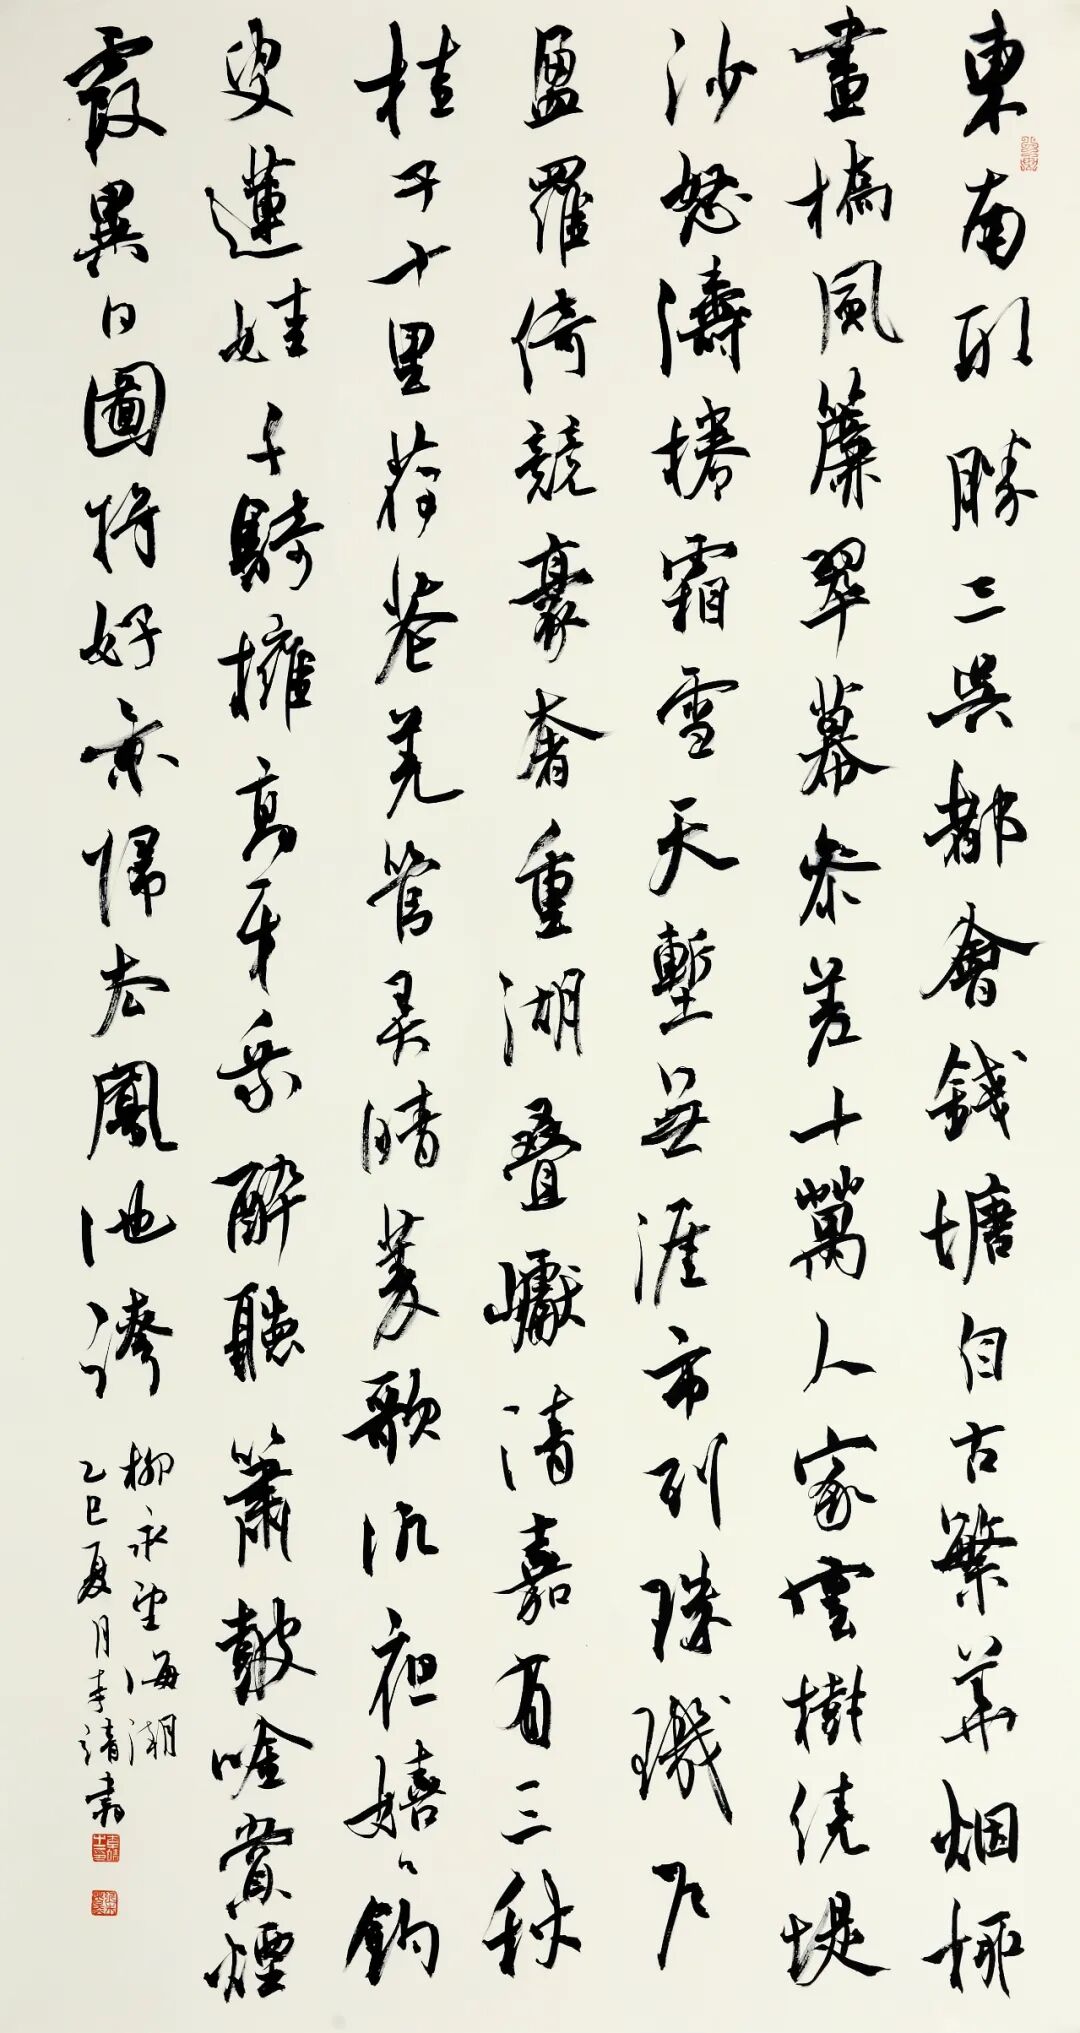 東南形勝三吳都會錢塘自古繁華烟柳
畫橋風簾翠幕參差十萬人家雲樹繞堤
沙怒濤捲霜雪天塹無涯市列珠璣戶
盈羅綺競豪奢重湖疊巘清嘉有三秋
桂子十里荷花羌管弄晴菱歌泛夜嬉嬉釣
叟蓮娃千騎擁高牙乘醉聽簫鼓吟賞煙
霞異日圖將好景歸去鳳池誇
柳永望海潮
乙巳夏月李靖書